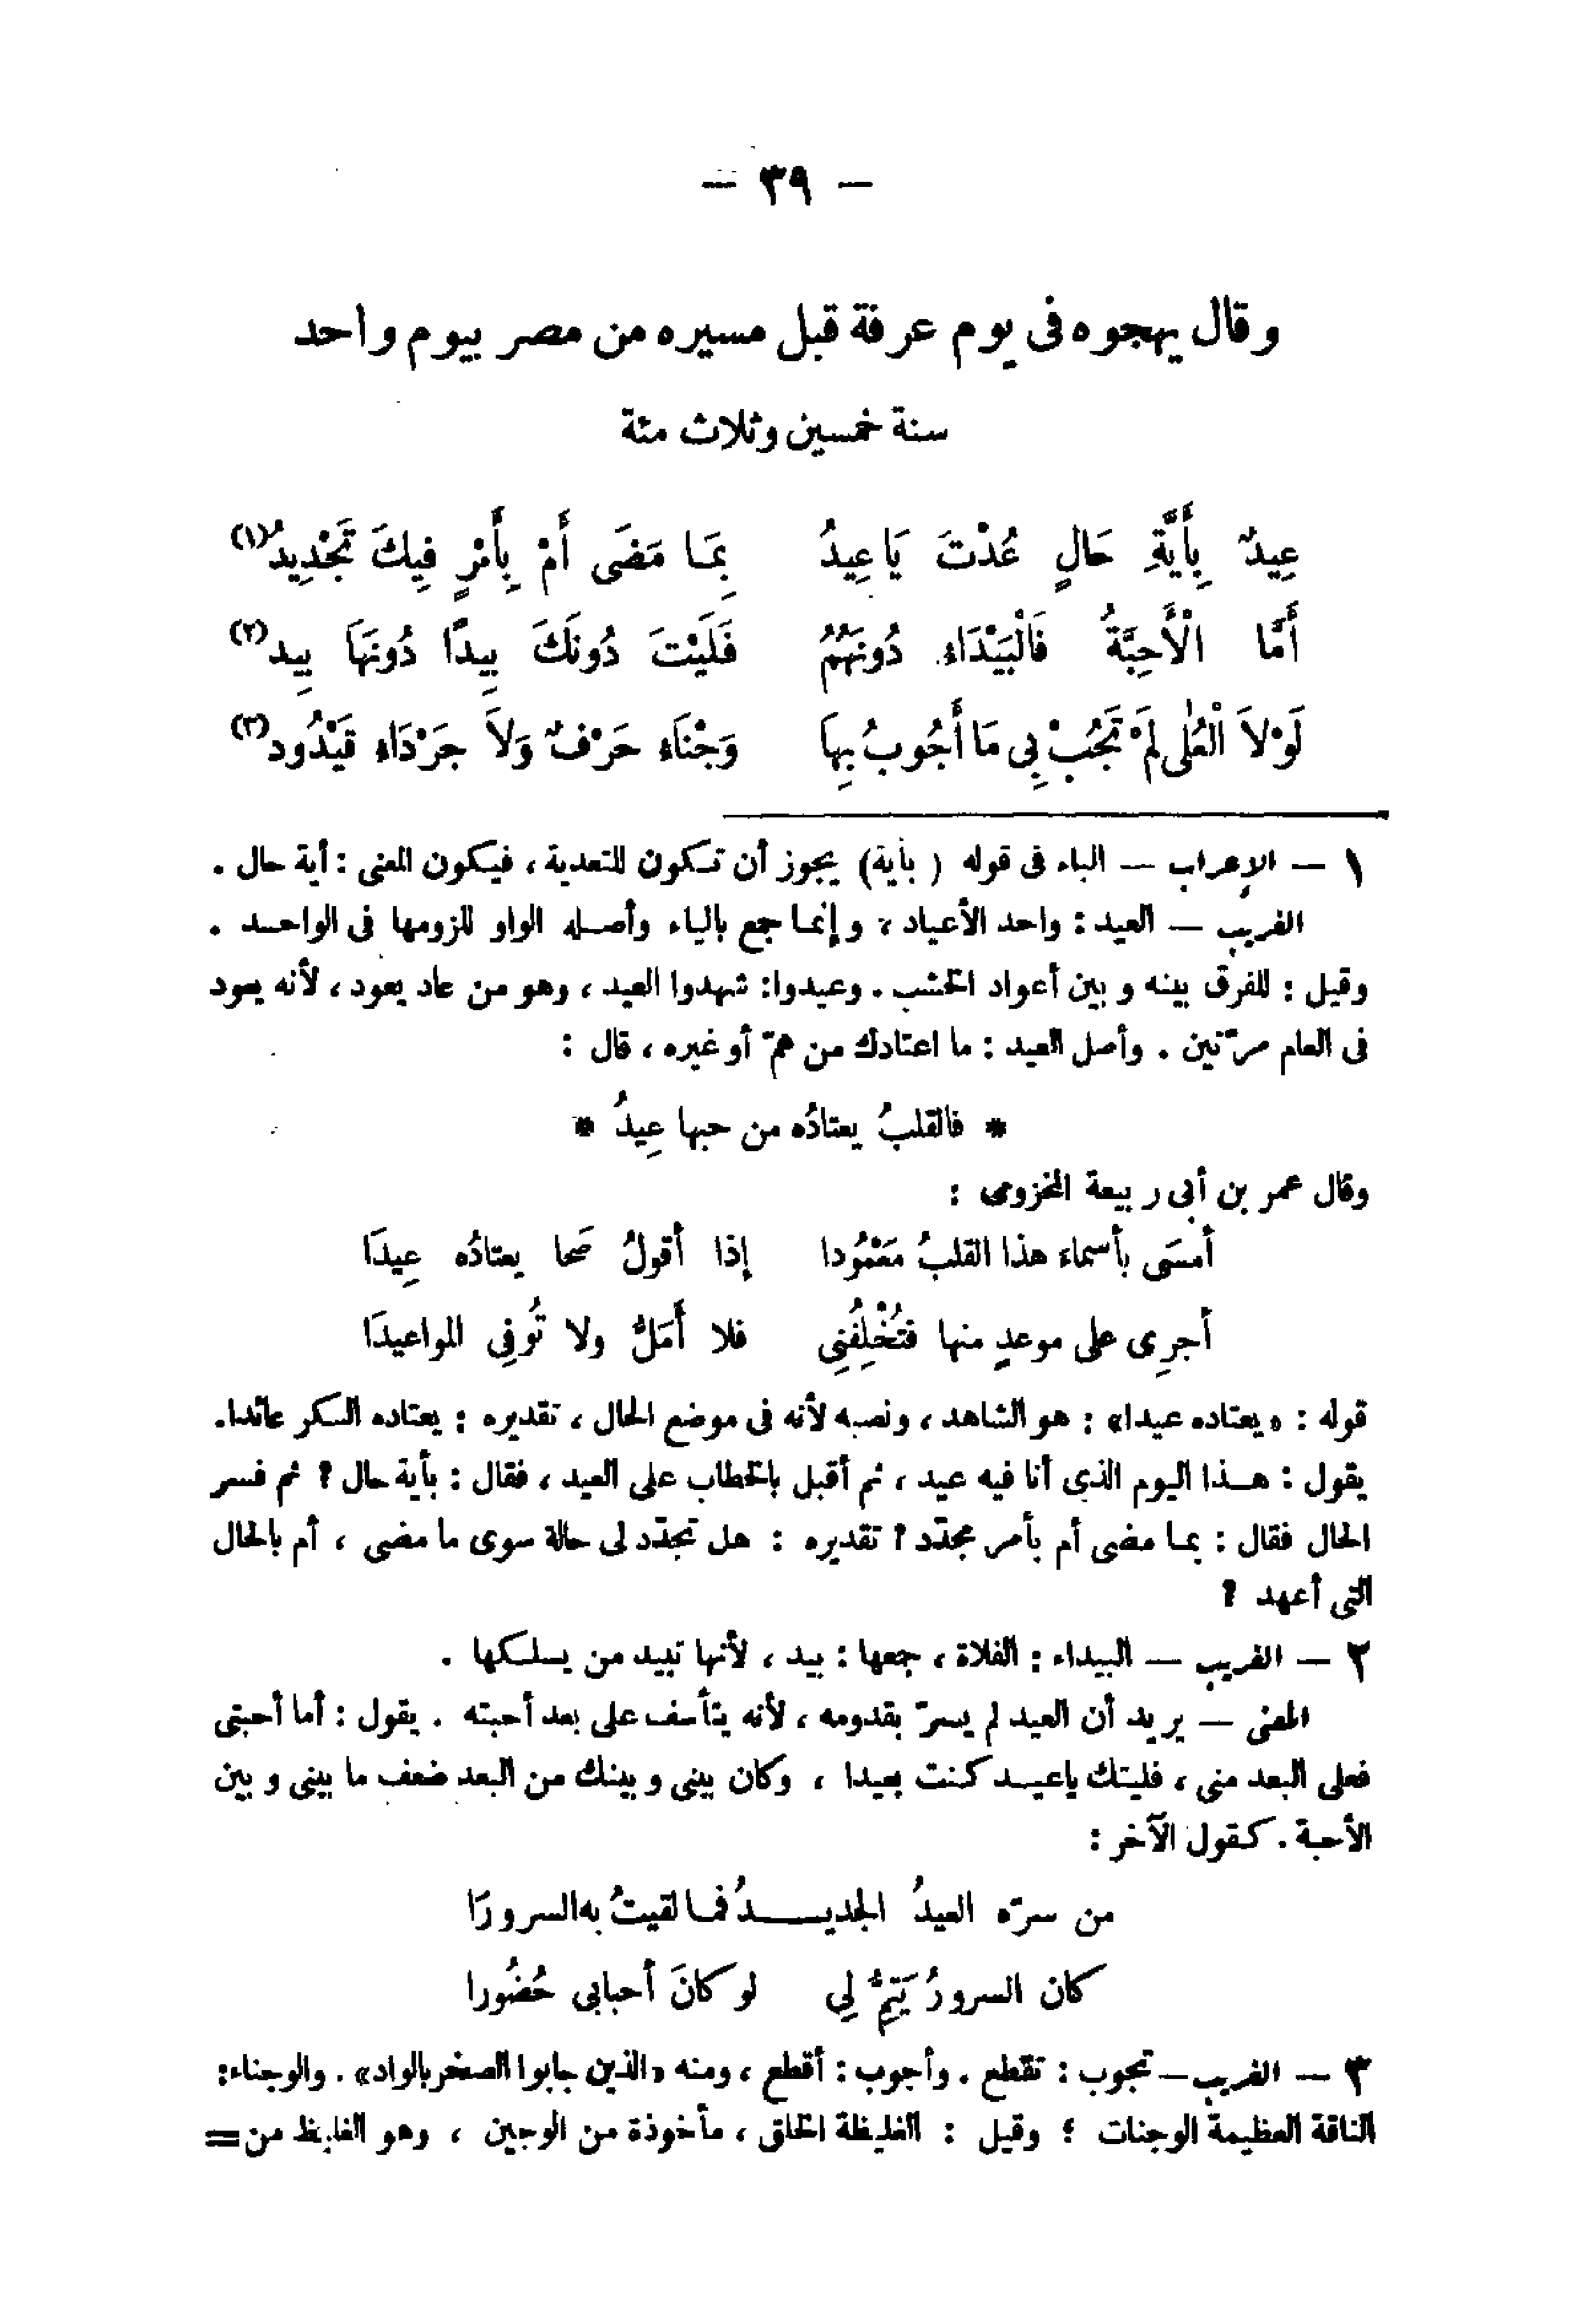 — ٣٩ —
وقال يهجوه فى يوم عرفة قبل مسيره من مصر بيوم واحد
سنة خمسين وثلاث مئة
عِيدٌ بِأَيَّةِ حَالٍ عُدْتَ يَا عِيدُ بِمَا مَضَى أَمْ بِأَمْرٍ فِيكَ تَجْدِيدُ(١)
أَمَّا الْأَحِبَّةُ فَالْبَيْدَاءُ دُونَهُمُ فَلَيْتَ دُونَكَ بِيدًا دُونَهَا بِيد(٢)
لَوْلاَ الْعُلٰى لَمْ تَجُبْ بِى مَا أَجُوبُ بِهَا وَجْنَاء حَرْفٌ وَلاَ جَرْدَاء قَيْدُود(٣)
١ — الإعراب — الباء فى قوله (بأية) يجوز أن تكون للتعدية، فيكون المعنى: أية حال.
الغريب — العيد: واحد الأعياد، وإنما جمع بالياء وأصله الواو للزومها فى الواحد.
وقيل: للفرق بينه وبين أعواد الخشب. وعيدوا: شهدوا العيد، وهو من عاد يعود، لأنه يعود
فى العام مرّتين. وأصل العيد: ما اعتادك من همّ أو غيره، قال:
* فالقلبُ يعتادُه من حبها عِيدُ *
وقال عمر بن أبى ربيعة المخزومى:
أمسَى بأسماء هذا القلبُ مَعْمُودا إذا أقولُ صَحا يعتادُه عِيدَا
أجرِى على موعدٍ منها فتُخْلِفُنِى فلا أَمَلُّ ولا تُوفِى المواعيدَا
قوله: «يعتاده عيدا»: هو الشاهد، ونصبه لأنه فى موضع الحال، تقديره: يعتاده السكر عائدا.
يقول: هذا اليوم الذى أنا فيه عيد، ثم أقبل بالخطاب على العيد، فقال: بأية حال؟ ثم فسر
الحال فقال: بما مضى أم بأمر مجدّد؟ تقديره: هل تجدّد لى حالة سوى ما مضى، أم بالحال
التى أعهد؟
٢ — الغريب — البيداء: الفلاة، جمعها: بيد، لأنها تبيد من يسلكها.
المعنى — يريد أن العيد لم يسرّ بقدومه، لأنه يتأسف على بعد أحبته. يقول: أما أحبتى
فعلى البعد منى، فليتك ياعيد كنت بعيدا، وكان بينى وبينك من البعد ضعف ما بينى وبين
الأحبة. كقول الآخر:
من سرّه العيدُ الجديـــدُ فما لقيتُ به السرورَا
كان السرورُ يَتِمُّ لِى لو كانَ أحبابى حُضُورا
٣ — الغريب — تجوب: تقطع. وأجوب: أقطع، ومنه «الذين جابوا الصخر بالواد». والوجناء:
الناقة العظيمة الوجنات؛ وقيل: الغليظة الخلق، مأخوذة من الوجين، وهو الغليظ من=